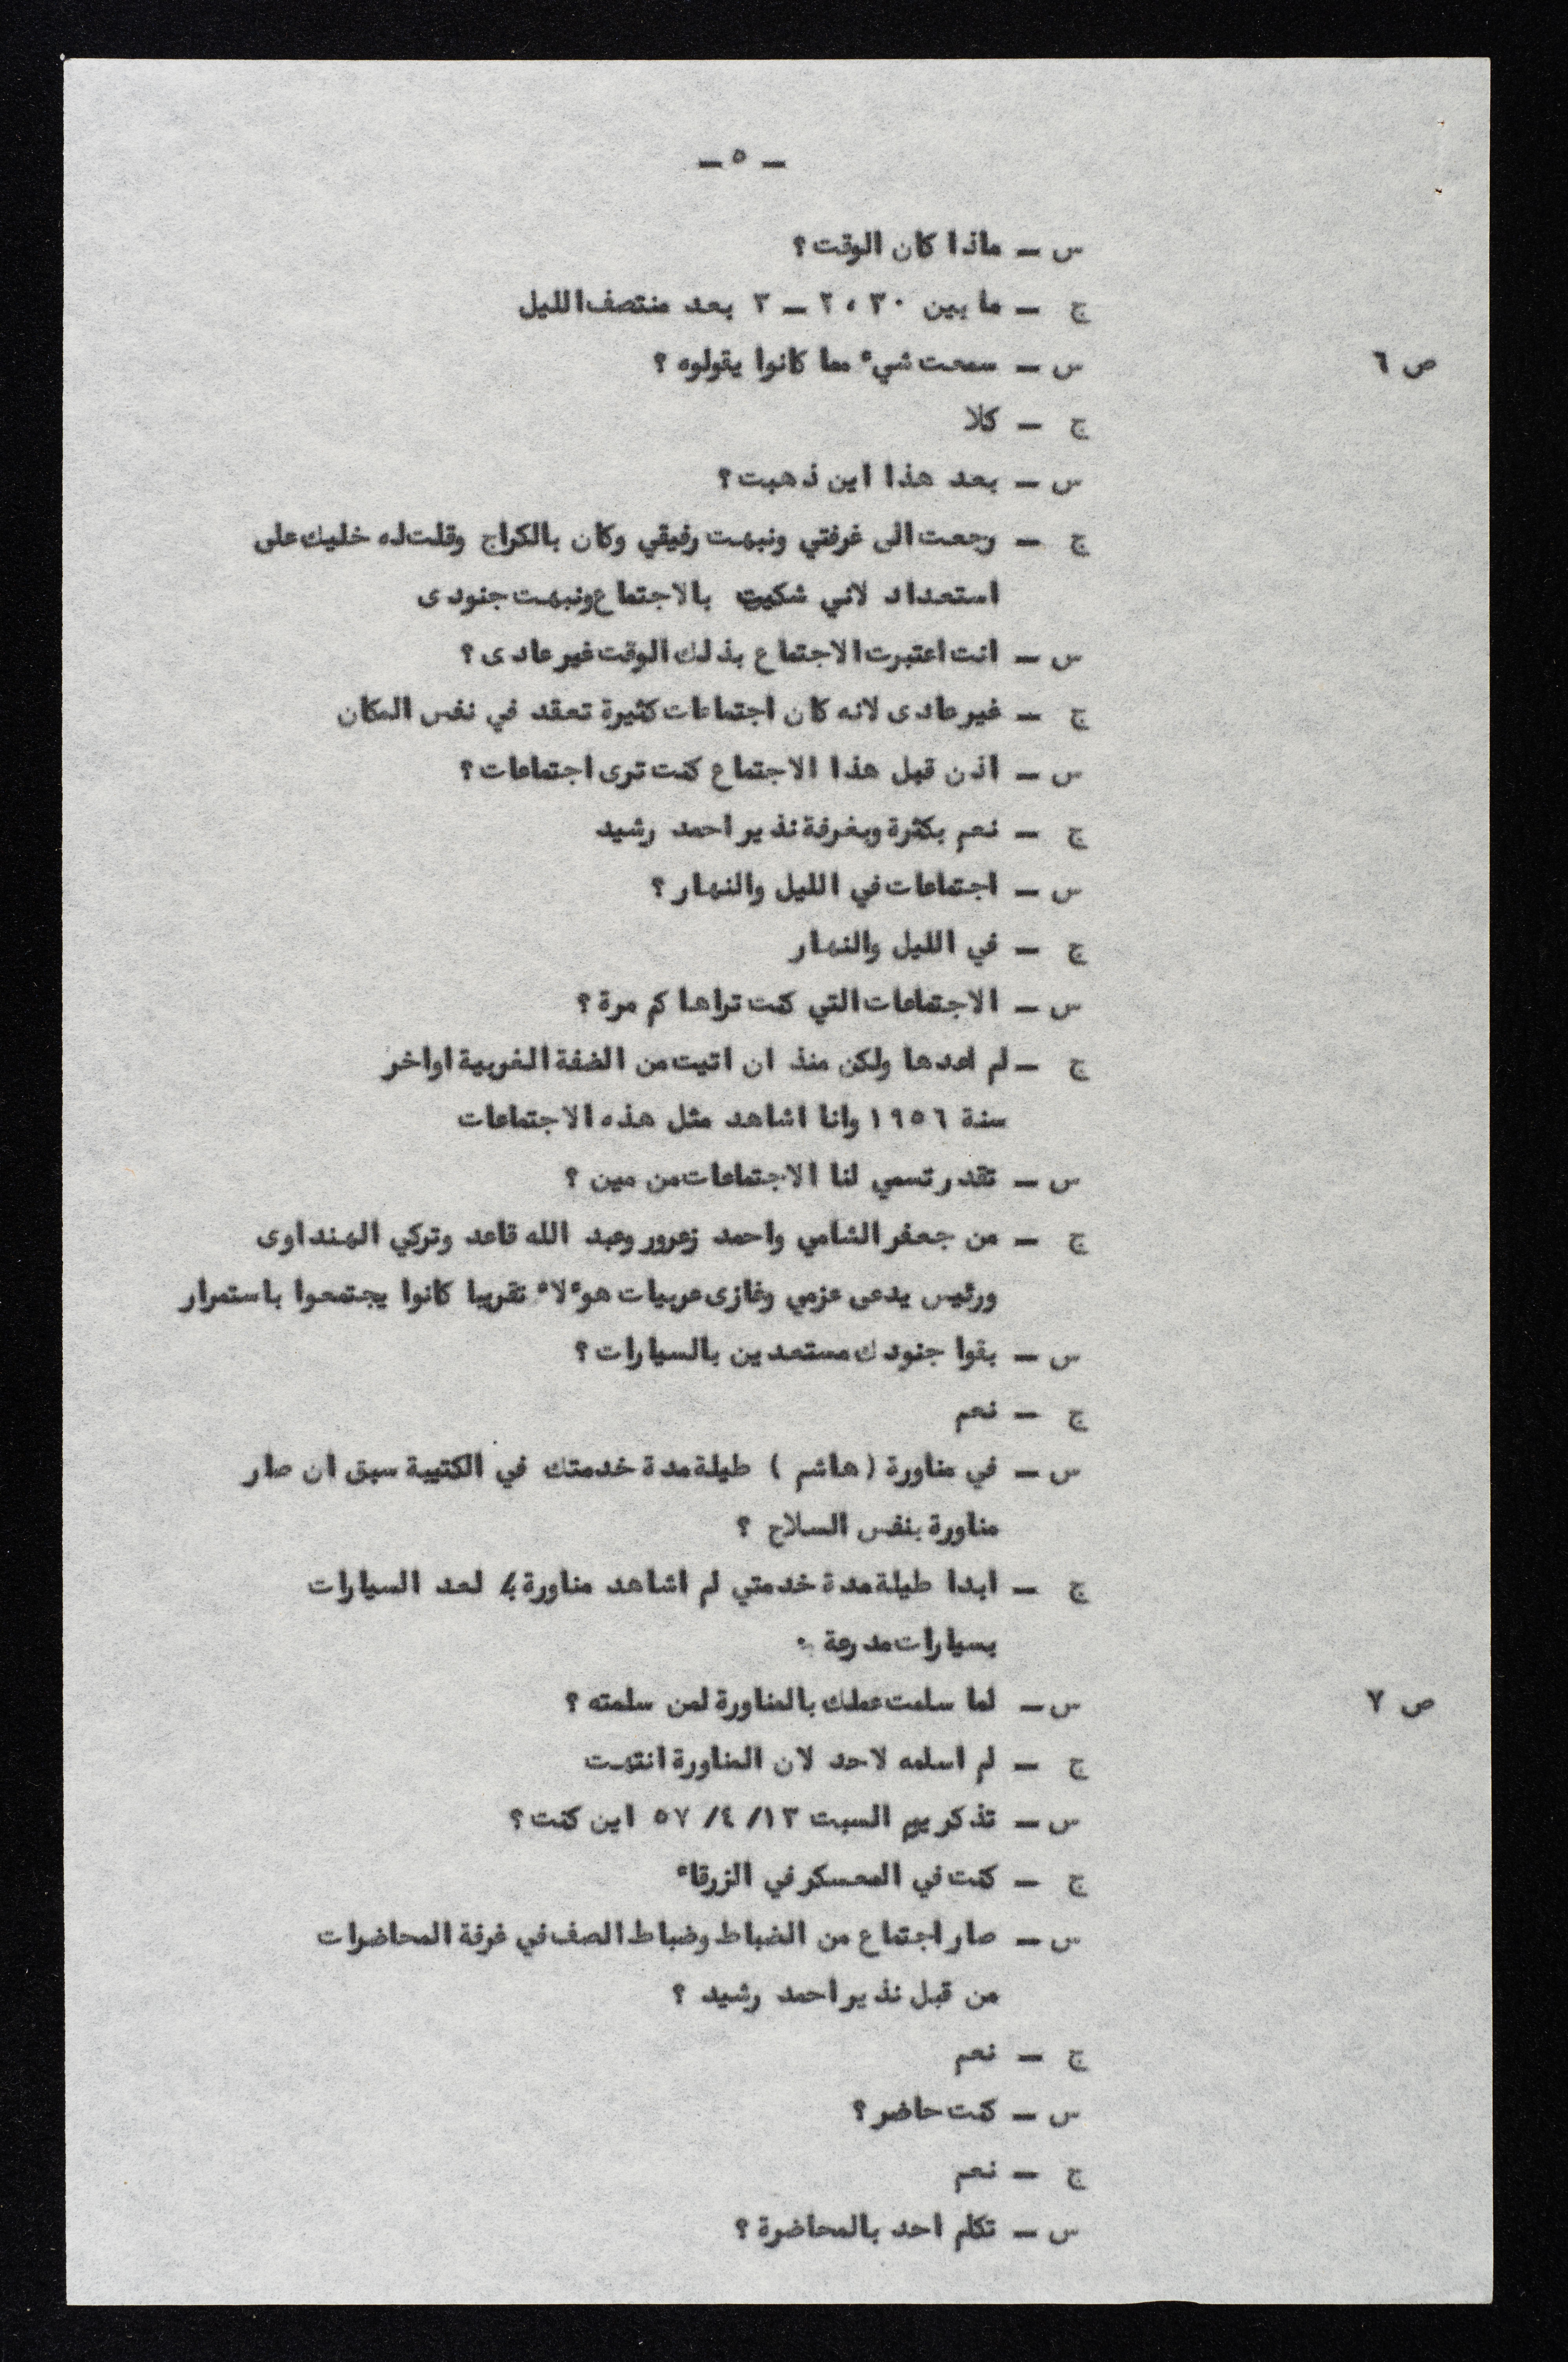 — ٥ —
س — ماذا كان الوقت؟
ج — ما بين ٣٠،٢ — ٣ بعد منتصف الليل
ص ٦ س — سمعت شيء مما كانوا يقولوه ؟
ج — كلا
س — بعد هذا اين ذهبت؟
ج — رجعت الى غرفتي ونبهت رفيقي وكان بالكراج وقلت له خليك على
استعداد لاني شكيت بالاجتماع ونبهت جنودى
س — انت اعتبرت الاجتماع بذلك الوقت غير عادى؟
ج — غير عادى لانه كان اجتماعات كثيرة تعقد في نفس المكان
س — اذن قبل هذا الاجتماع كنت ترى اجتماعات؟
ج — نعم بكثرة وبغرفة نذير احمد رشيد
س — اجتماعات في الليل والنهار؟
ج — في الليل والنهار
س — الاجتماعات التي كنت تراها كم مرة؟
ج — لم اعدها ولكن منذ ان اتيت من الضفة الغربية اواخر
سنة ١٩٥٦ وانا اشاهد مثل هذه الاجتماعات
س — تقدر تسمي لنا الاجتماعات من مين ؟
ج — من جعفر الشامي واحمد زعرور وعبد الله قاعد وتركي الهنداوى
ورئيس يدعى عزمي وغازى عربيات هوءلاء تقريبا كانوا يجتمعوا باستمرار
س — بقوا جنودك مستعدين بالسيارات؟
ج — نعم
س — في مناورة (هاشم ) طيلة مدة خدمتك في الكتيبة سبق ان صار
مناورة بنفس السلاح ؟
ج — ابدا طيلة مدة خدمتي لم اشاهد مناورة لعد السيارات
بسيارات مدرعة .
ص ٧ س — لما سلمت عملك بالمناورة لمن سلمته ؟
ج — لم اسلمه لاحد لان المناورة انتهت
س — تذكر يوم السبت ١٣/ ٤/ ٥٧ اين كنت؟
ج — كنت في المعسكر في الزرقاء
س — صار اجتماع من الضباط وضباط الصف في غرفة المحاضرات
من قبل نذير احمد رشيد ؟
ج — نعم
س — كنت حاضر؟
ج — نعم
س — تكلم احد بالمحاضرة ؟